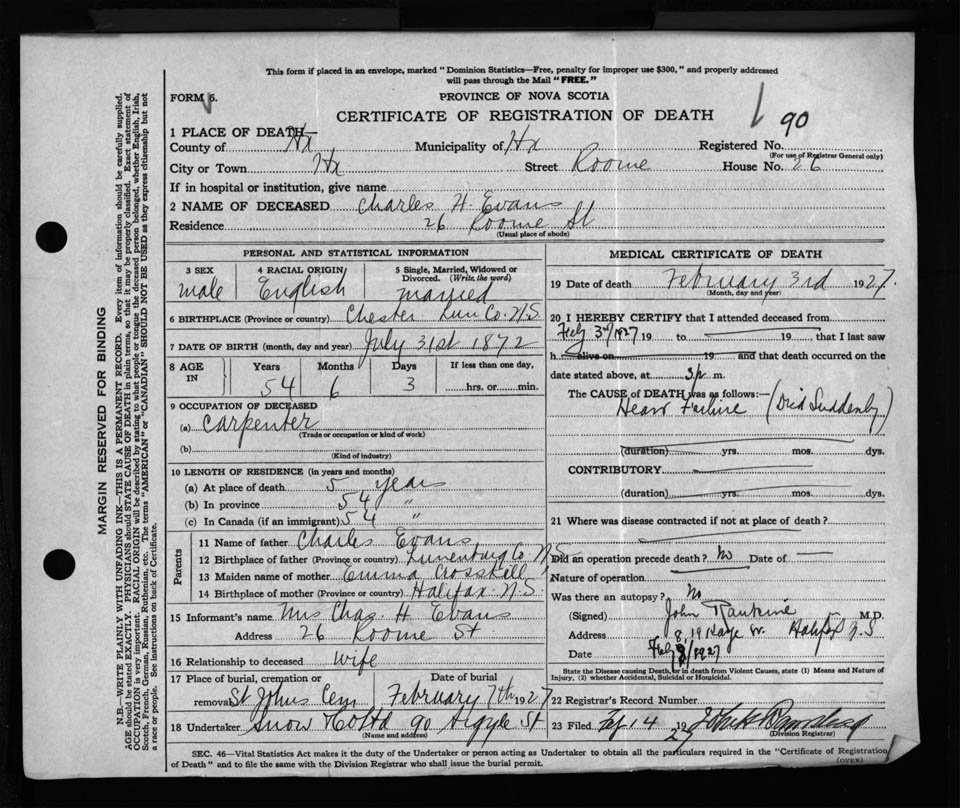 This form if placed in an envelope, marked "Dominion Statistics—Free, penalty for improper use $300," and properly addressed
will pass through the Mail "FREE."
FORM 6.
PROVINCE OF NOVA SCOTIA
CERTIFICATE OF REGISTRATION OF DEATH
90
1 PLACE OF DEATH—
County of Hx Municipality of Hx Registered No.
(For use of Registrar General only)
City or Town Hx Street Roome House No. 26
If in hospital or institution, give name
2 NAME OF DECEASED Charles H. Evans
Residence 26 Roome St
(Usual place of abode)
PERSONAL AND STATISTICAL INFORMATION
3 SEX 4 RACIAL ORIGIN 5 Single, Married, Widowed or
Divorced. (Write the word)
male English married
6 BIRTHPLACE (Province or country) Chester Lun Co. N.S.
7 DATE OF BIRTH (month, day and year) July 31st 1872
8 AGE IN Years Months Days If less than one day,
54 6 3 hrs. or min.
9 OCCUPATION OF DECEASED
(a) Carpenter
(Trade or occupation or kind of work)
(b)
(Kind of industry)
10 LENGTH OF RESIDENCE (in years and months)
(a) At place of death 5 years
(b) In province 54 "
(c) In Canada (if an immigrant) 54 "
Parents
11 Name of father Charles Evans
12 Birthplace of father (Province or country) Lunenburg Co. N.S.
13 Maiden name of mother Emma Crosskill
14 Birthplace of mother (Province or country) Halifax N.S.
15 Informant's name Mrs Chas. H Evans
Address 26 Roome St.
16 Relationship to deceased wife
17 Place of burial, cremation or Date of burial
removal St Johns Cem February 7th 1927
18 Undertaker Snow & Co Ltd 90 Argyle St
(Name and address)
MEDICAL CERTIFICATE OF DEATH
19 Date of death February 3rd 1927.
(Month, day and year)
20 I HEREBY CERTIFY that I attended deceased from
Feby 3rd 1927 19 to 19 that I last saw
h alive on 19 and that death occurred on the
date stated above, at 3p m.
The CAUSE OF DEATH was as follows:—
Heart Failure (Died Suddenly)
(duration) yrs. mos. dys.
CONTRIBUTORY
(duration) yrs. mos. dys.
21 Where was disease contracted if not at place of death?
Did an operation precede death? No Date of
Nature of operation
Was there an autopsy? No
(Signed) John Rankine M.D.
Address Halifax N.S
Date Feby 1927
State the Disease causing Death, or in death from Violent Causes, state (1) Means and Nature of
Injury, (2) whether Accidental, Suicidal or Homicidal.
22 Registrar's Record Number
23 Filed Feb 14 1927
(Division Registrar)
SEC. 46—Vital Statistics Act makes it the duty of the Undertaker or person acting as Undertaker to obtain all the particulars required in the "Certificate of Registration
of Death" and to file the same with the Division Registrar who shall issue the burial permit.
(OVER)
MARGIN RESERVED FOR BINDING
N.B.—WRITE PLAINLY WITH UNFADING INK—THIS IS A PERMANENT RECORD. Every item of information should be carefully supplied.
AGE should be stated EXACTLY. PHYSICIANS should STATE CAUSE OF DEATH in plain terms, so that it may be properly classified. Exact statement of
OCCUPATION is very important. RACIAL ORIGIN will be described by stating to what people or tongue the deceased person belonged, whether English, Irish,
Scotch, French, German, Russian, Ruthenian, etc. The terms "AMERICAN" or "CANADIAN" SHOULD NOT BE USED as they express citizenship but not
a race or people. See instructions on back of Certificate.